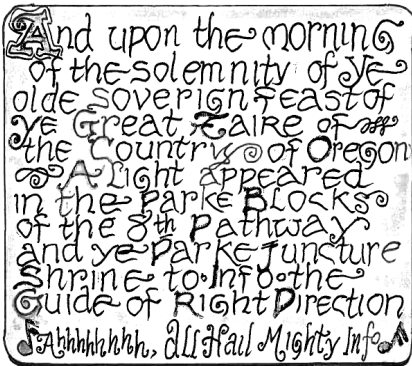 And upon the morning
of the solemnity of ye
olde soverign feast of
ye Great Faire of
the Country of Oregon
A Light appeared
in the Parke Blocks
of the 8th Pathway
and ye Parke Juncture
Shrine to·Info·the
Guide of Right Direction
Ahhhhhhhh, all Hail Mighty Info